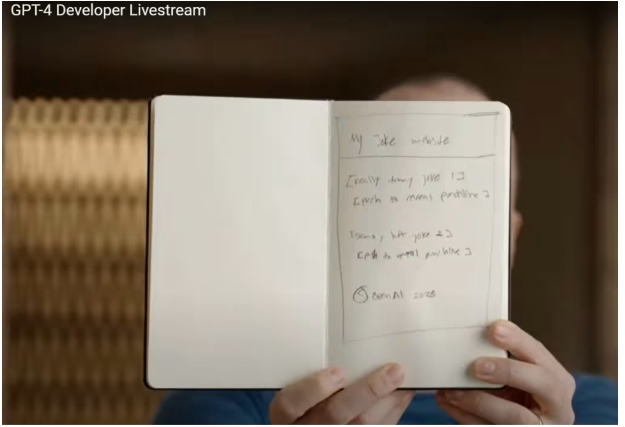 GPT-4 Developer Livestream
My Joke website
[really funny joke 1]
[push to reveal punchline]
joke 2]
[push to reveal punchline]
OpenAI